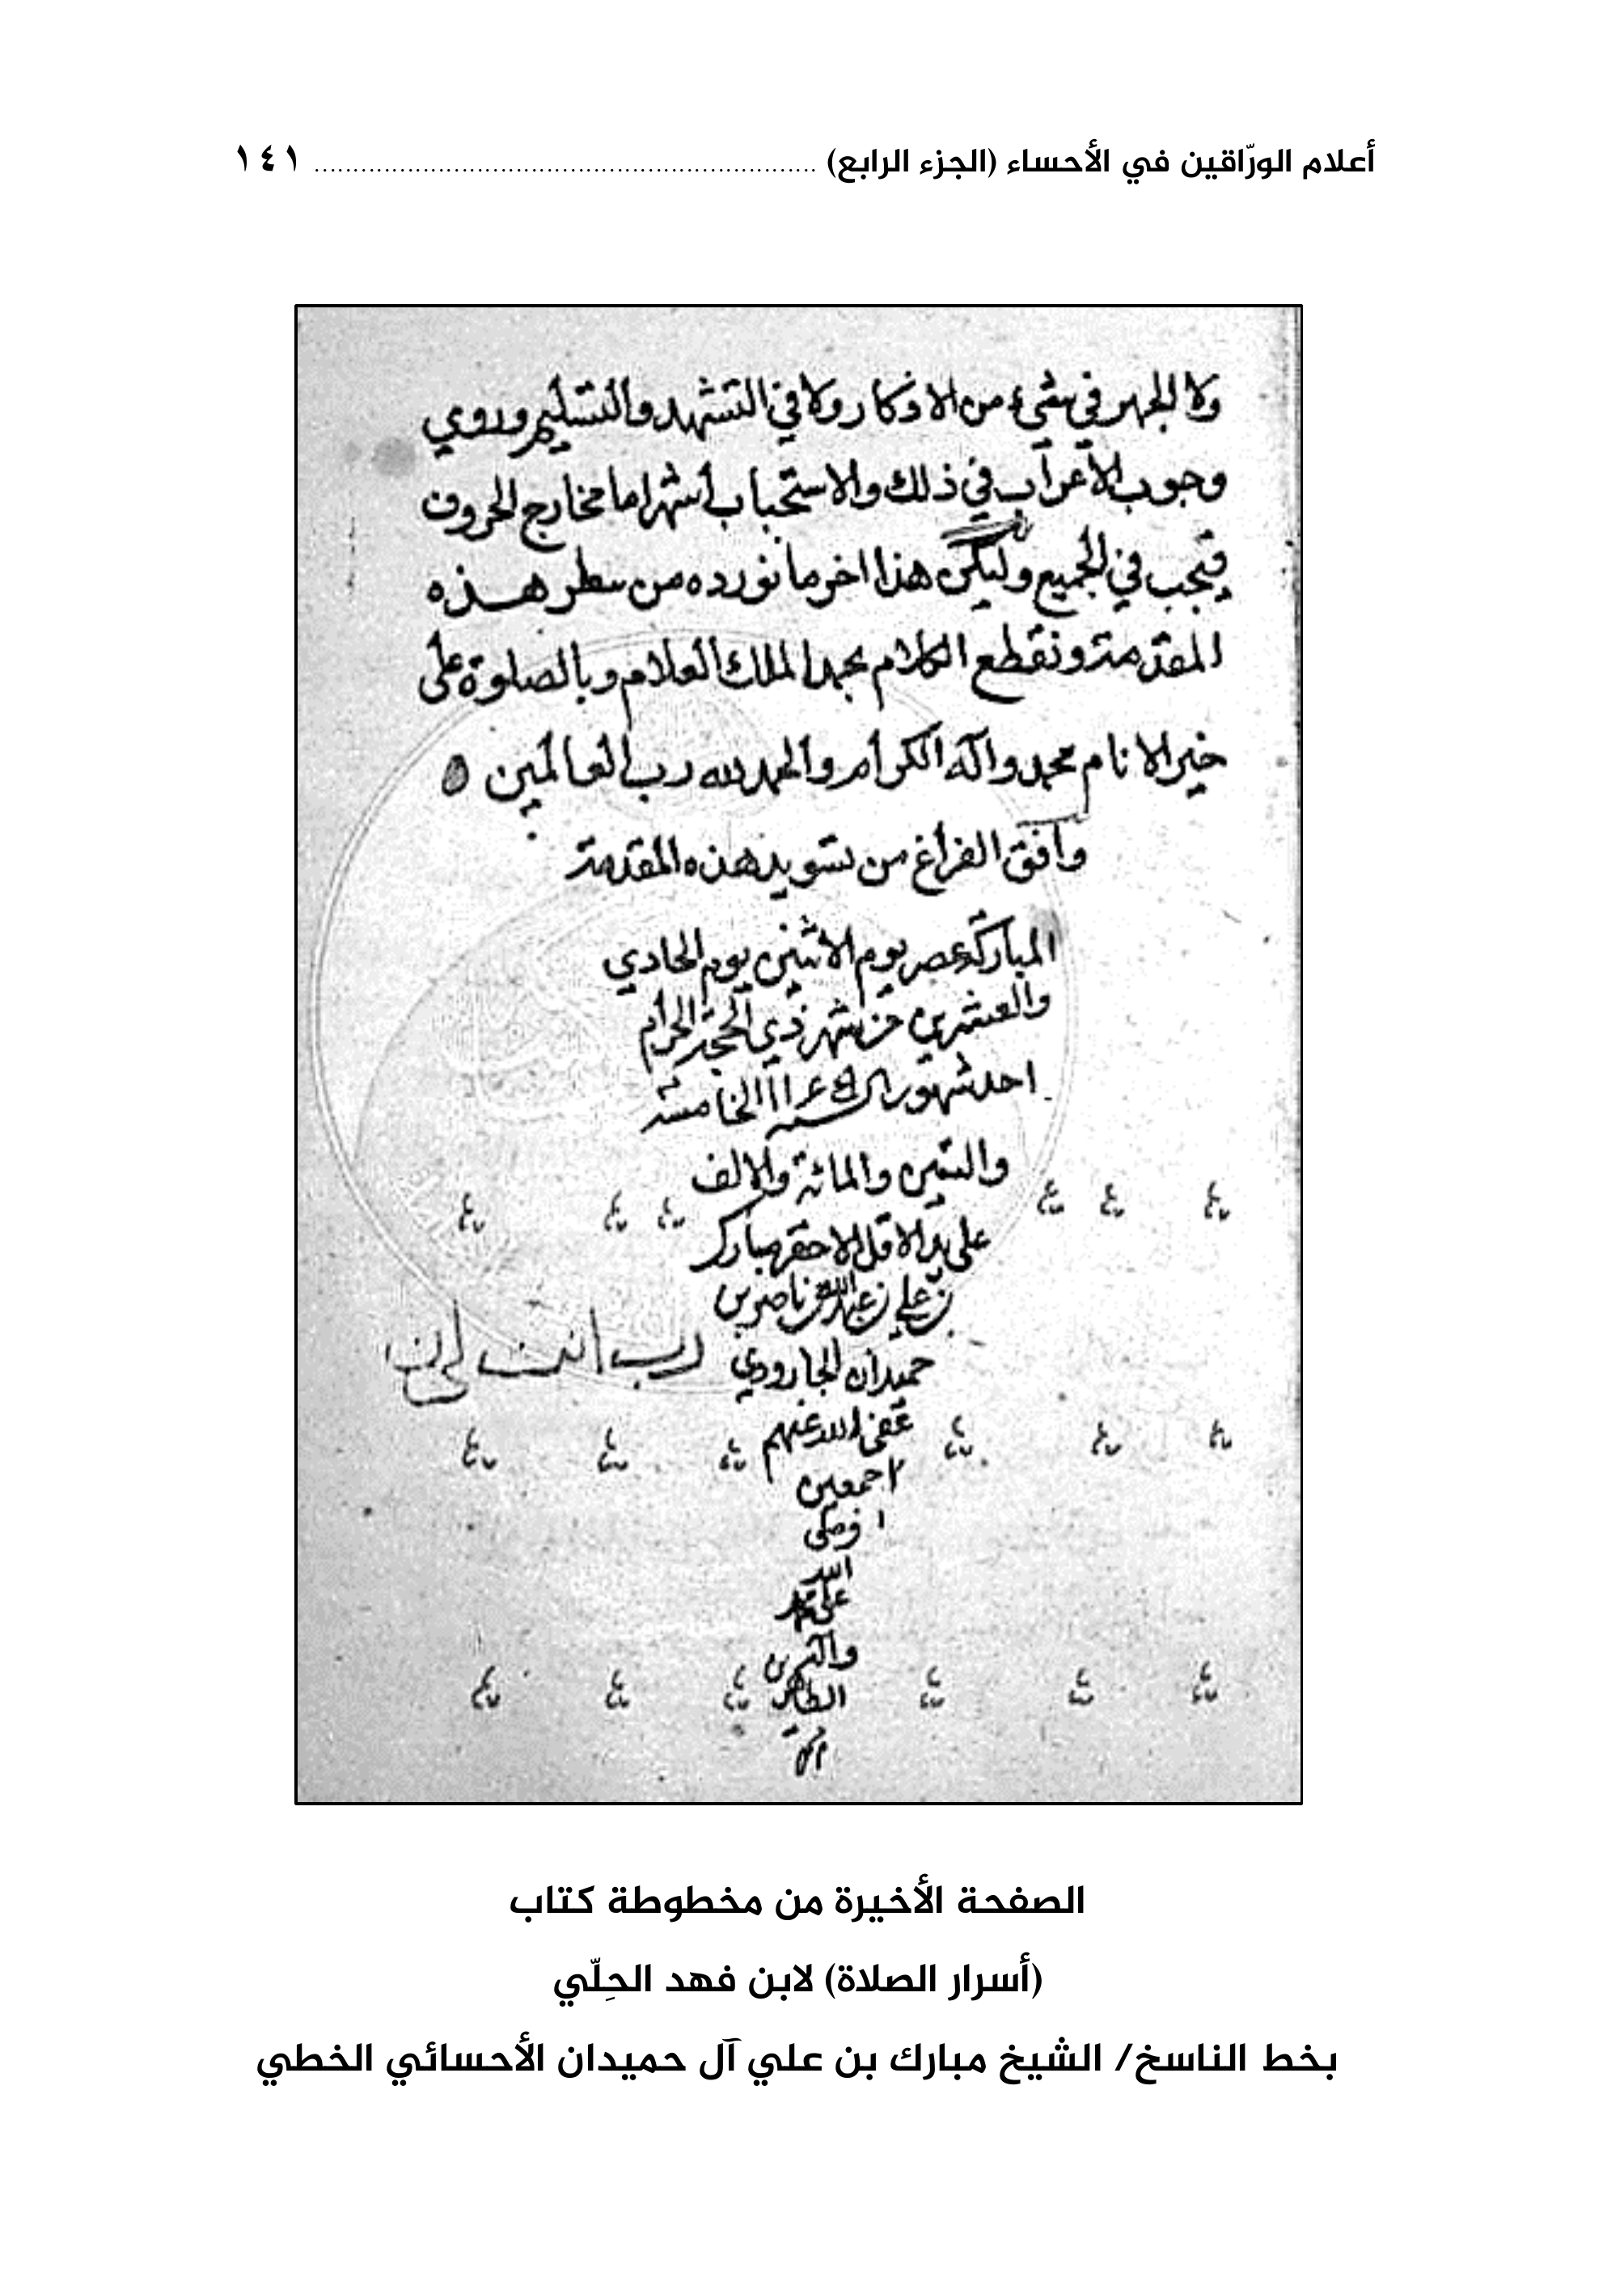 أعلام الورّاقين في الأحساء (الجزء الرابع) ............................................................... ١٤١
ولا الجهر في شيء من الاذكار ولا في التشهد والتسليم وروي
وجوب الاعراب في ذلك والاستحباب أشهر اما مخارج الحروف
فيجب في الجميع وليكن هذا اخر ما نورده من سطر هذه
المقدمة ونقطع الكلام بحمد الملك العلام وبالصلوة على
خير الانام محمد واله الكرام والحمد لله رب العالمين
وافق الفراغ من تسويد هذه المقدمة
المباركة عصر يوم الاثنين يوم الحادي
والعشرين من شهر ذي الحجة الحرام
احد شهور الخامسة
والستين والمائة والالف
على يد الاقل الاحقر مبارك
بن علي بن عبدالله بن ناصر بن
حميدان الجارودي
رب انت لي
عفى الله عنهم
اجمعين
وصلى
الله
على محمد
واله
الطاهرين
الصفحة الأخيرة من مخطوطة كتاب
(أسرار الصلاة) لابن فهد الحِلّي
بخط الناسخ/ الشيخ مبارك بن علي آل حميدان الأحسائي الخطي